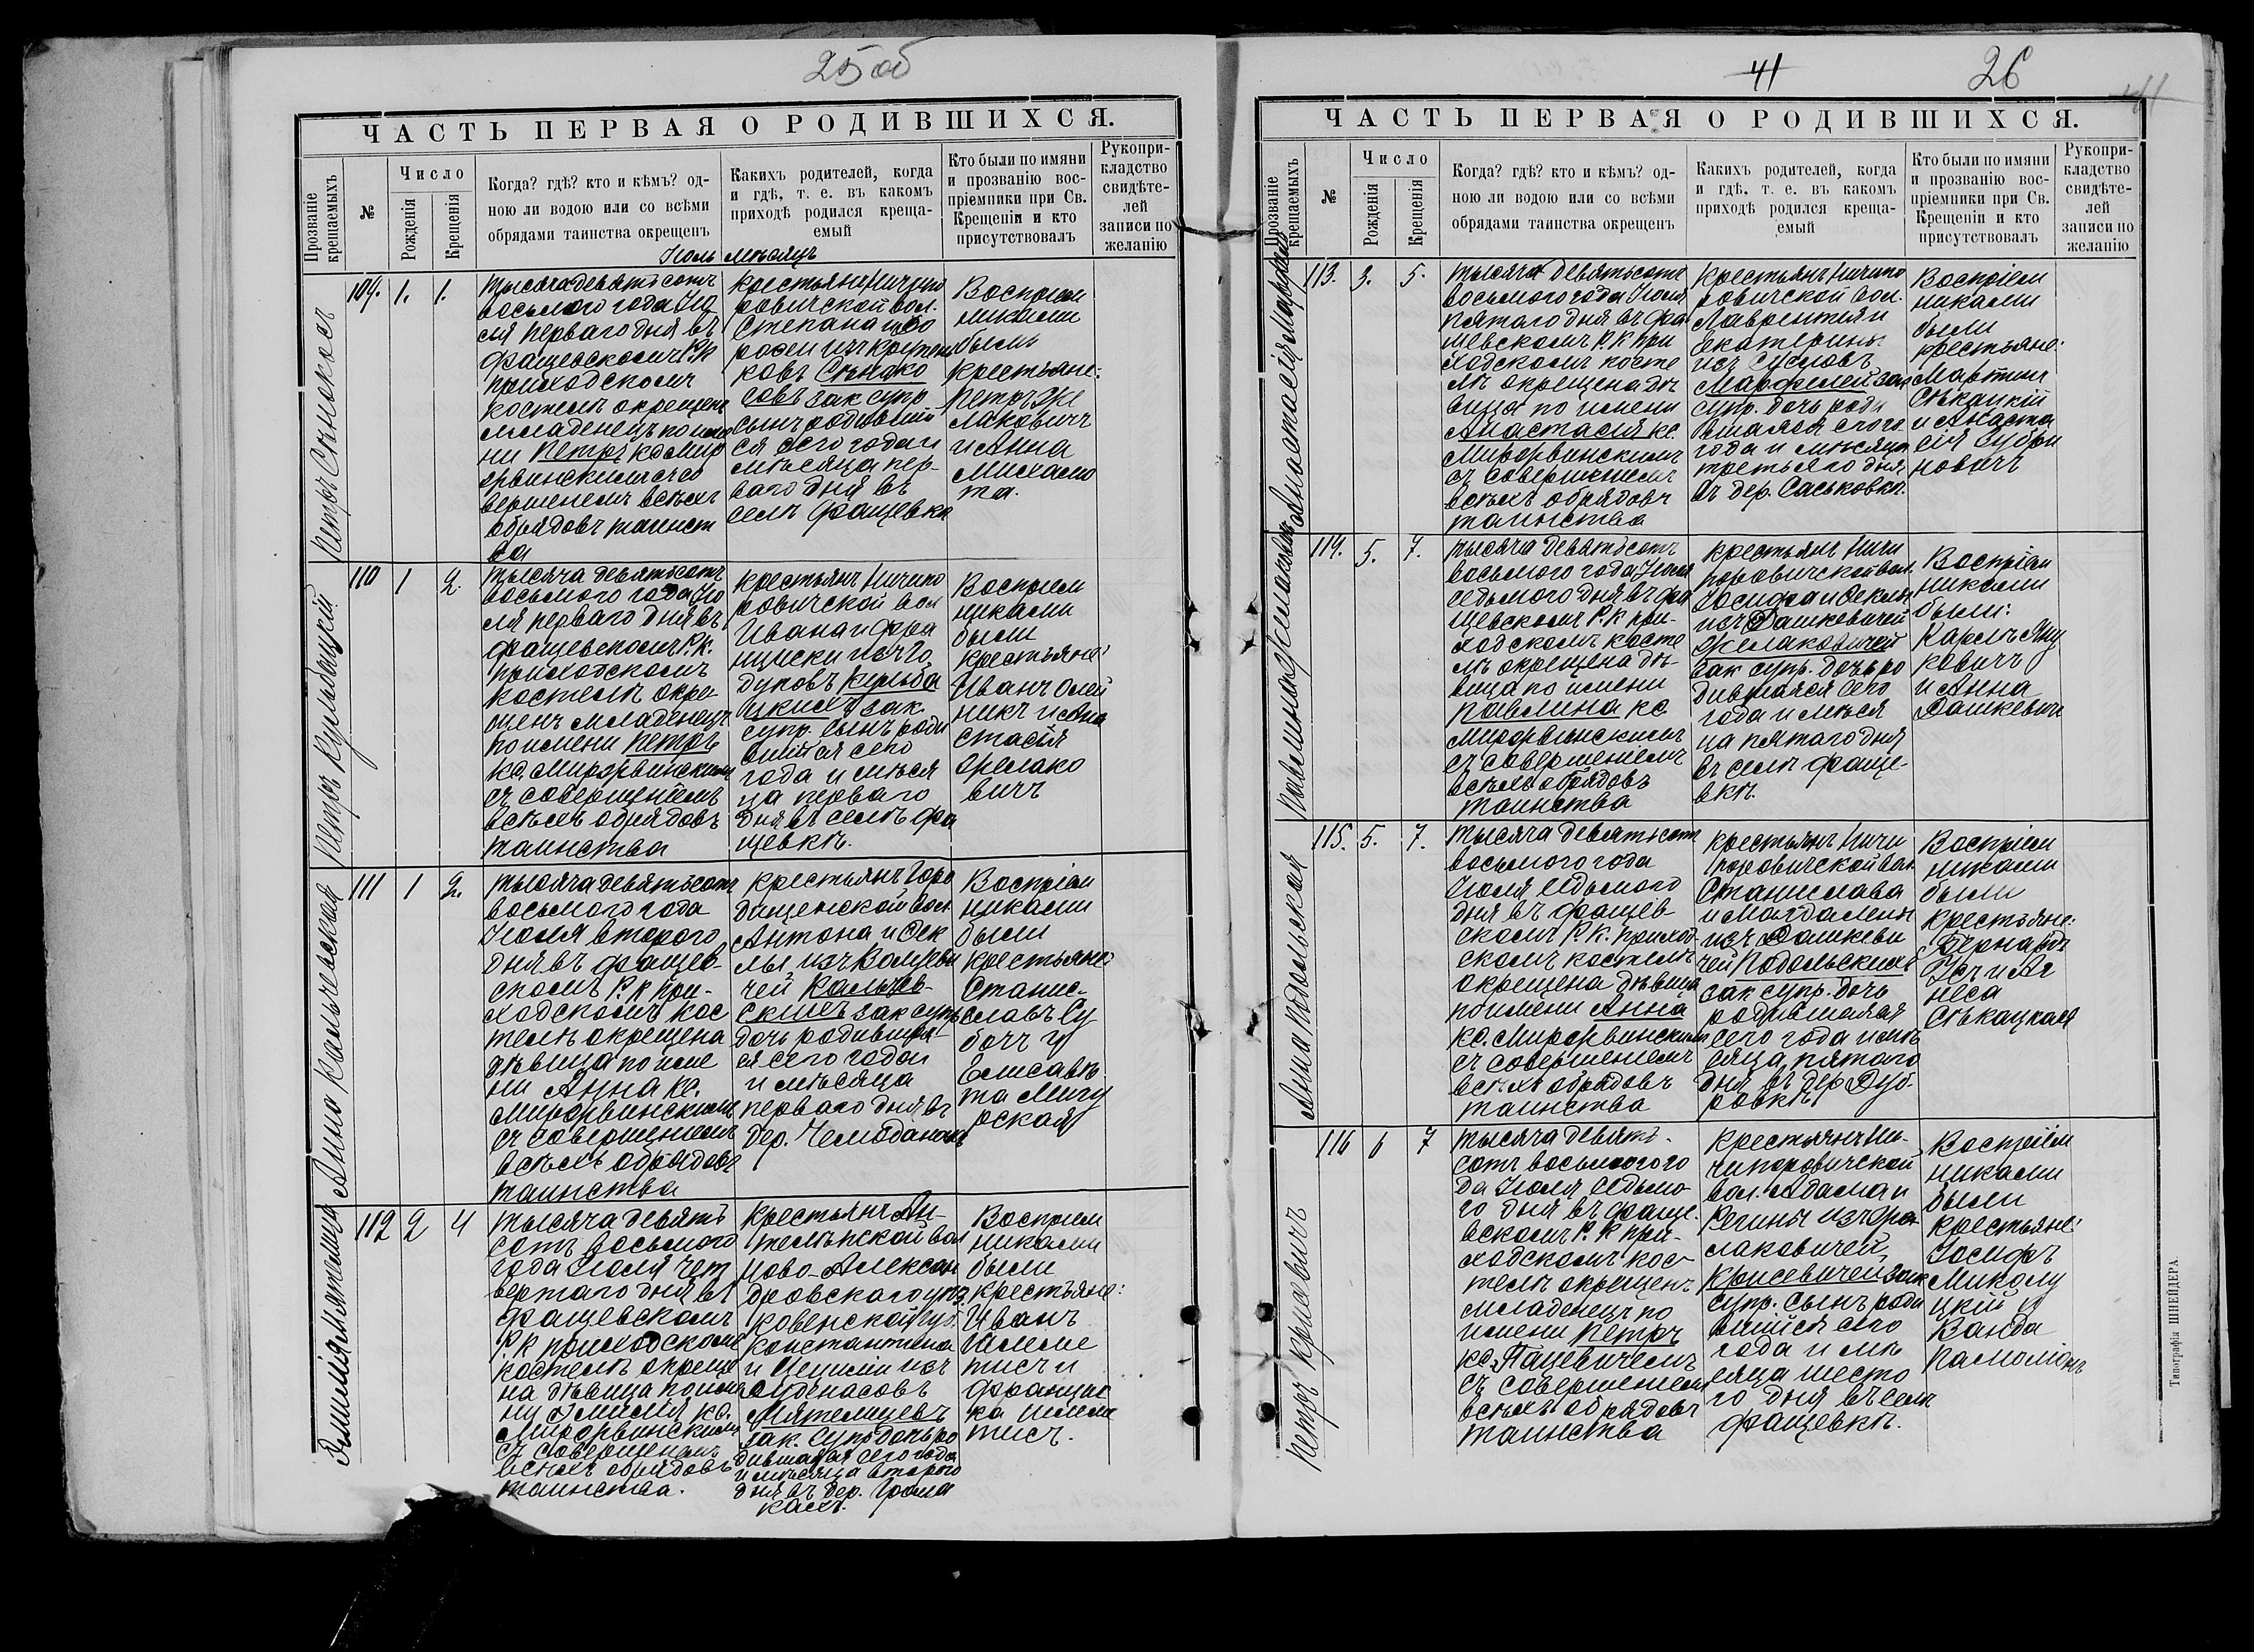 25 об
ЧАСТЬ ПЕРВАЯ О РОДИВШИХСЯ.
Прозваніе крещаемыхъ
№
Число
Рожденія
Крещенія
Когда? гдѣ? кто и кѣмъ? од-
ною ли водою или со всѣми
обрядами таинства окрещенъ
Какихъ родителей, когда
и гдѣ, т. е. въ какомъ
приходѣ родился креща-
емый
Кто были по имяни
и прозванію вос-
пріемники при Св.
Крещеніи и кто
присутствовалъ
Рукопри-
кладство
свидѣте-
лей
записи по
желанію
Іюль мѣсяцъ
Петръ Сѣнокосъ
109. 1. 1.
Тысяча девятьсотъ
восьмого года Ію
ля перваго дня въ
Фащевскомъ Р.К
приходскомъ
костелѣ окрещенъ
младенецъ по име
ни Петръ кс. Мир
орвинскимъ съ со
вершенiемъ всѣхъ
обрядовъ таинст
ва
Крестьянъ Ничипо
ровичской вол.
Степана и
ковъ Сѣноко
совъ зак супр
сынъ родивший
ся сего года и
мѣсяца пер-
ваго дня въ
селѣ Фащевка
Воспріем
никами
были
крестьяне:
Петръ Же
лаковичъ
и Анна
110 1 2.
Тысяча девятьсотъ
восьмого года Ію
ля перваго дня въ
Фащевскомъ Р.К.
приходскомъ
костелѣ окре-
щенъ младенецъ
по имени Петръ
кс. Мирорвинскимъ
съ совершеніемъ
всѣхъ обрядовъ
таинства
Крестьянъ Ничипо
ровичской вол
Ивана и Фран
циски изъ Го
зак.
супр. сынъ роди
вшийся сего
года и мѣся
ца перваго
дня въ селѣ Фа
щевкѣ.
Воспріем
никами
были
крестьяне:
Иванъ Олей
никъ и Ана
стасія
вичъ
Анна Кольчевская
111 1 2.
Тысяча девятьсотъ
восьмого года
Іюля второго
дня въ Фащев-
скомъ Р.К при-
ходскомъ кос
телѣ окрещена
дѣвица по име
ни Анна кс.
Мирорвинскимъ
съ совершеніемъ
всѣхъ обрядовъ
таинства
Крестьянъ Горо
дищенской вол.
Антона и Фек
лы изъ
чей Кольчев-
скихъ зак супр
дочь родившая-
ся сего года
и мѣсяца
перваго дня въ
дер. Чемоданахъ
Воспріем
никами
были
крестьяне:
Станис-
лавъ Су
бочъ и
Елисаве
та
Эмилія Мятелица
112 2 4
Тысяча девять
сотъ восьмого
года Іюля чет
вертаго дня въ
Фащевскомъ
Р.К приходскомъ
костелѣ окреще
на дѣвица по име
ни Эмилія кс.
Мирорвинскимъ
съ совершеніемъ
всѣхъ обрядовъ
таинства.
Крестьянъ Ан-
вол
Ново-Алексан
дровскаго уѣз.
Ковенской губ.
Константина
и Цециліи изъ
Мятелицевъ
зак. супр дочь ро
дившаяся сего года
и мѣсяца второго
дня въ дер. Грома
кахъ.
Воспріем
никами
были
крестьяне:
Иванъ
и
Францис
ка
41
26
41
ЧАСТЬ ПЕРВАЯ О РОДИВШИХСЯ.
Прозваніе крещаемыхъ
№
Число
Рожденія
Крещенія
Когда? гдѣ? кто и кѣмъ? од-
ною ли водою или со всѣми
обрядами таинства окрещенъ
Какихъ родителей, когда
и гдѣ, т. е. въ какомъ
приходѣ родился креща-
емый
Кто были по имяни
и прозванію вос-
пріемники при Св.
Крещеніи и кто
присутствовалъ
Рукопри-
кладство
свидѣте-
лей
записи по
желанію
Анастасія
113. 3. 5.
Тысяча девятьсотъ
восьмого года Іюля
пятаго дня въ Фа
щевскомъ Р.К при
ходскомъ косте
лѣ окрещена дѣ
вица по имени
Анастасія кс.
Мирорвинскимъ
съ совершеніемъ
всѣхъ обрядовъ
таинства
Крестьянъ Ничипо
ровичской вол.
Лаврентія и
Екатерины
изъ Сусловъ
зак
супр. дочь роди
вшаяся сего
года и мѣсяца
третьяго дня
въ дер. Саськовка.
Воспріем
никами
были
крестьяне:
Мартинъ
Сѣкацкій
и Анаста
сія Зубри
новичъ
Павлина Желаковичъ
114. 5. 7.
Тысяча девятьсотъ
восьмого года Іюля
седьмого дня въ Фа
щевскомъ Р.К при-
ходскомъ косте
лѣ окрещена дѣ-
вица по имени
Павлина кс.
Мирорвинскимъ
съ совершеніемъ
всѣхъ обрядовъ
таинства
Крестьянъ Ничи
поровичской вол.
Іосифа и Феклы
изъ Дашкевичей
Желаковичей
зак супр. дочь ро
дившаяся сего
года и мѣся
ца пятаго дня
въ селѣ Фаще
вкѣ.
Воспріем
никами
были:
Карлъ Яну
кевичъ
и Анна
Дашкевичъ
Анна Подольская
115. 5. 7.
Тысяча девятьсотъ
восьмого года
Іюля седьмого
дня въ Фащев-
скомъ Р.К. приход-
скомъ костелѣ
окрещена дѣвица
по имени Анна
кс. Мирорвинскимъ
съ совершеніемъ
всѣхъ обрядовъ
таинства
Крестьянъ Ничи
поровичской вол.
Станислава
и Магдалены
изъ Дашкеви
чей Подольскихъ
зак супр. дочь
родившаяся
сего года и мѣ
сяца пятаго
дня въ дер Дуб-
ровкѣ
Воспріем
никами
были
крестьяне:
Бернардъ
и Аг
неса
Сѣкацкая
Петръ Крисевичъ
116 6 7
Тысяча девять-
сотъ восьмого го
да Іюля седьмо-
го дня въ Фаще-
вскомъ Р.К при-
ходскомъ кос-
телѣ окрещенъ
младенецъ по
имени Петръ
кс. Пацевичемъ
съ совершеніемъ
всѣхъ обрядовъ
таинства
Крестьянъ Ни-
чипоровичской
вол. Адама и
Регины изъ
лаковичей
Крисевичей зак
супр. сынъ роди
вшийся сего
года и мѣ
сяца шесто
го дня въ селѣ
Фащевкѣ.
Воспріем
никами
были
крестьяне:
Іосифъ
Миколу
цкій и
Ванда
Типографія ШНЕЙДЕРА